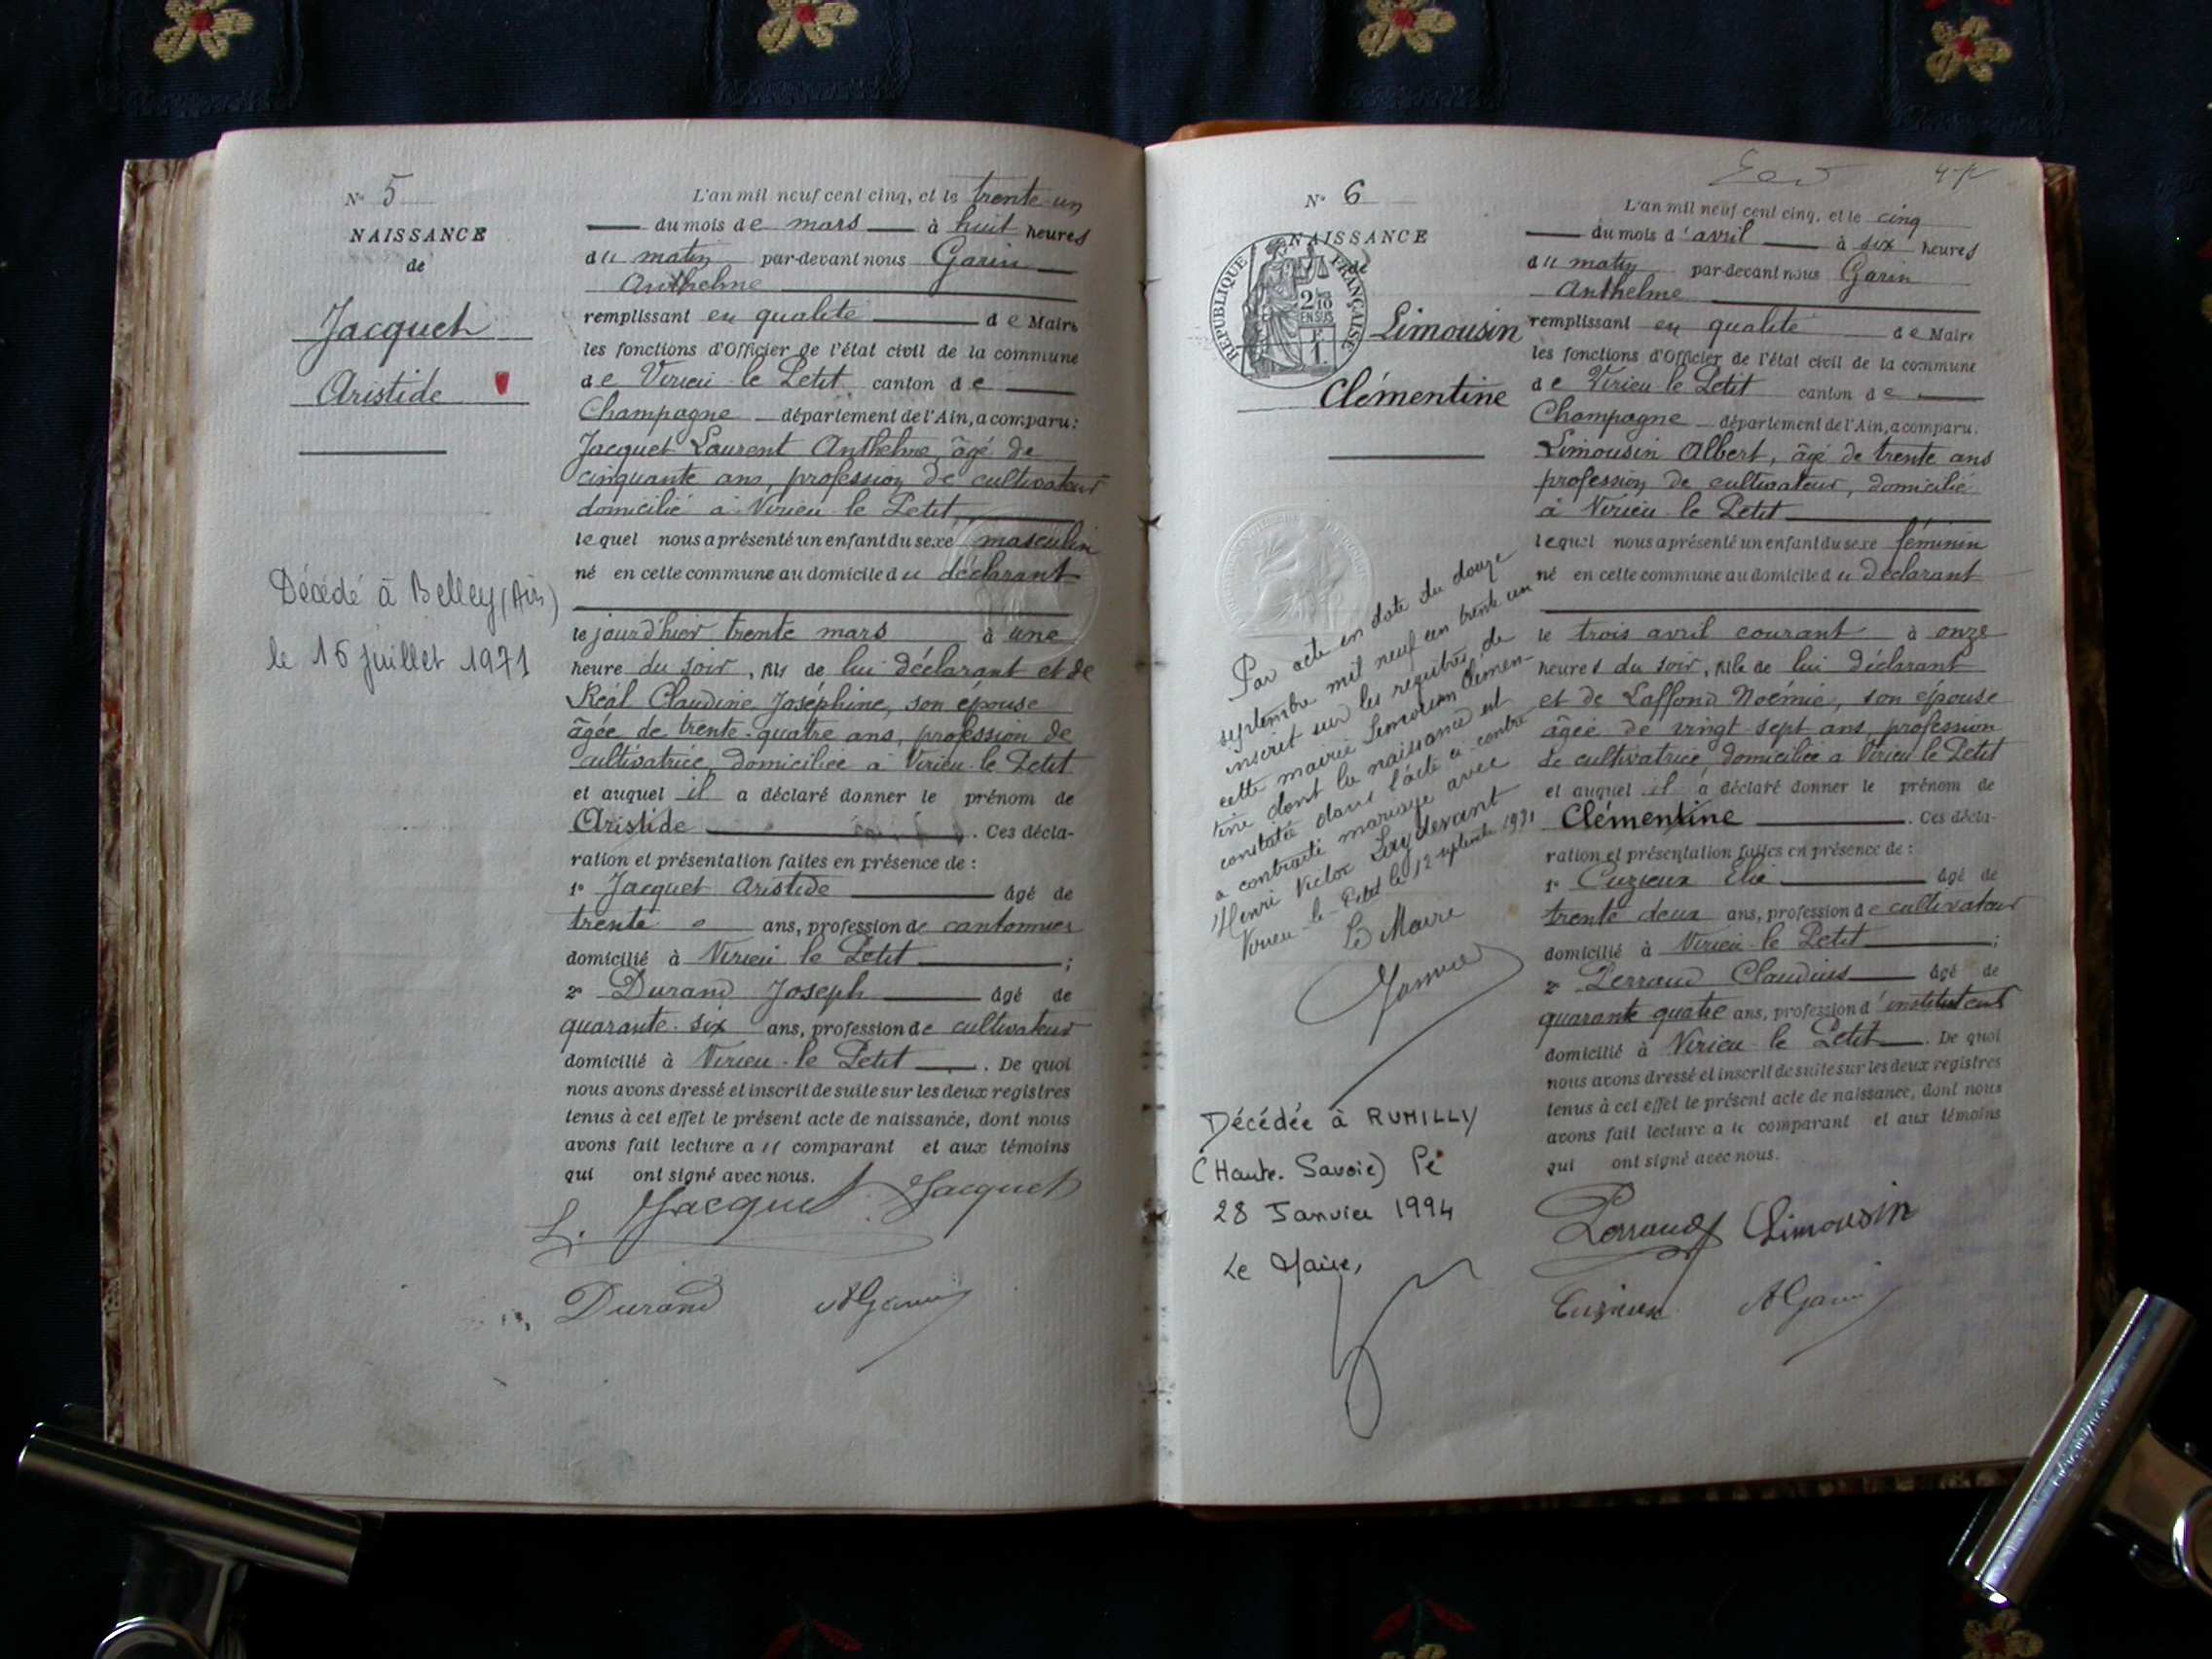 N° 5
NAISSANCE
de
Jacquet
Aristide
Décédé à Belley (Ain)
le 16 juillet 1971
L'an mil neuf cent cinq, et le trente-un
du mois de mars à huit heures
du matin par-devant nous Garin
Anthelme
remplissant en qualité de Maire
les fonctions d'Officier de l'état civil de la commune
de Virieu-le-Petit canton de
Champagne département de l'Ain, a comparu:
Jacquet Laurent Anthelme, âgé de
cinquante ans, profession de cultivateur
domicilié à Virieu-le-Petit
lequel nous a présenté un enfant du sexe masculin
né en cette commune au domicile du déclarant
le jour d'hier trente mars à une
heure du soir, fils de lui déclarant et de
Réal Claudine Joséphine, son épouse
âgée de trente-quatre ans, profession de
cultivatrice, domiciliée à Virieu-le-Petit
et auquel il a déclaré donner le prénom de
Aristide . Ces décla-
ration et présentation faites en présence de :
1° Jacquet Aristide âgé de
trente ans, profession de cantonnier
domicilié à Virieu-le-Petit ;
2° Durand Joseph âgé de
quarante-six ans, profession de cultivateur
domicilié à Virieu-le-Petit . De quoi
nous avons dressé et inscrit de suite sur les deux registres
tenus à cet effet le présent acte de naissance, dont nous
avons fait lecture au comparant et aux témoins
qui ont signé avec nous.
L. Jacquet Jacquet
Durand AGarin
N° 6
NAISSANCE
de
RÉPUBLIQUE FRANÇAISE
2/10 EN SUS
F
1.
Limousin
Clémentine
Par acte en date du douze
septembre mil neuf cen trente un
inscrit sur les registres de
cette mairie Limousin Clémen-
tine dont la naissance est
constatée dans l'acte ci-contre
a contracté mariage avec
Henri Victor Leydevant
Virieu-le-Petit le 12 septembre 1931
Le Maire
Décédée à RUMILLY
(Haute-Savoie) le
28 Janvier 1994
Le Maire,
L'an mil neuf cent cinq, et le cinq
du mois d'avril à six heures
du matin par-devant nous Garin
Anthelme
remplissant en qualité de Maire
les fonctions d'Officier de l'état civil de la commune
de Virieu-le-Petit canton de
Champagne département de l'Ain, a comparu:
Limousin Albert, âgé de trente ans
profession de cultivateur, domicilié
à Virieu-le-Petit
lequel nous a présenté un enfant du sexe féminin
né en cette commune au domicile du déclarant
le trois avril courant à onze
heures du soir, fille de lui déclarant
et de Laffond Noémie, son épouse
âgée de vingt-sept ans, profession
de cultivatrice, domiciliée à Virieu-le-Petit
et auquel il a déclaré donner le prénom de
Clémentine . Ces décla-
ration et présentation faites en présence de :
1° Cuzieux Elie âgé de
trente deux ans, profession de cultivateur
domicilié à Virieu-le-Petit ;
2° Perraud Claudius âgé de
quarante quatre ans, profession d'instituteur
domicilié à Virieu-le-Petit . De quoi
nous avons dressé et inscrit de suite sur les deux registres
tenus à cet effet le présent acte de naissance, dont nous
avons fait lecture au comparant et aux témoins
qui ont signé avec nous.
Perraud Limousin
Cuzieux AGarin